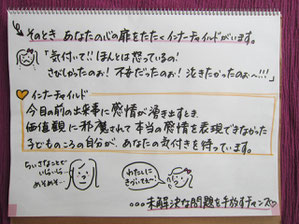 そのとき あなたの心の扉をたたくインナーチャイルドがいます。
「気付いて!! ほんとは怒っているの!
さびしかったのぉ! 不安だったのぉ! 泣きたかったのぉ〜!!!」
インナーチャイルド
今目の前の出来事に感情が湧き出すとき、
価値観に邪魔されて本当の感情を表現できなかった
子どものころの自分が、あなたの気付きを待っています。
ちいさなことで
いらいら…
めそめそ…
わたしに
きづいて〜!
…未解決な問題を手放すチャンス♡